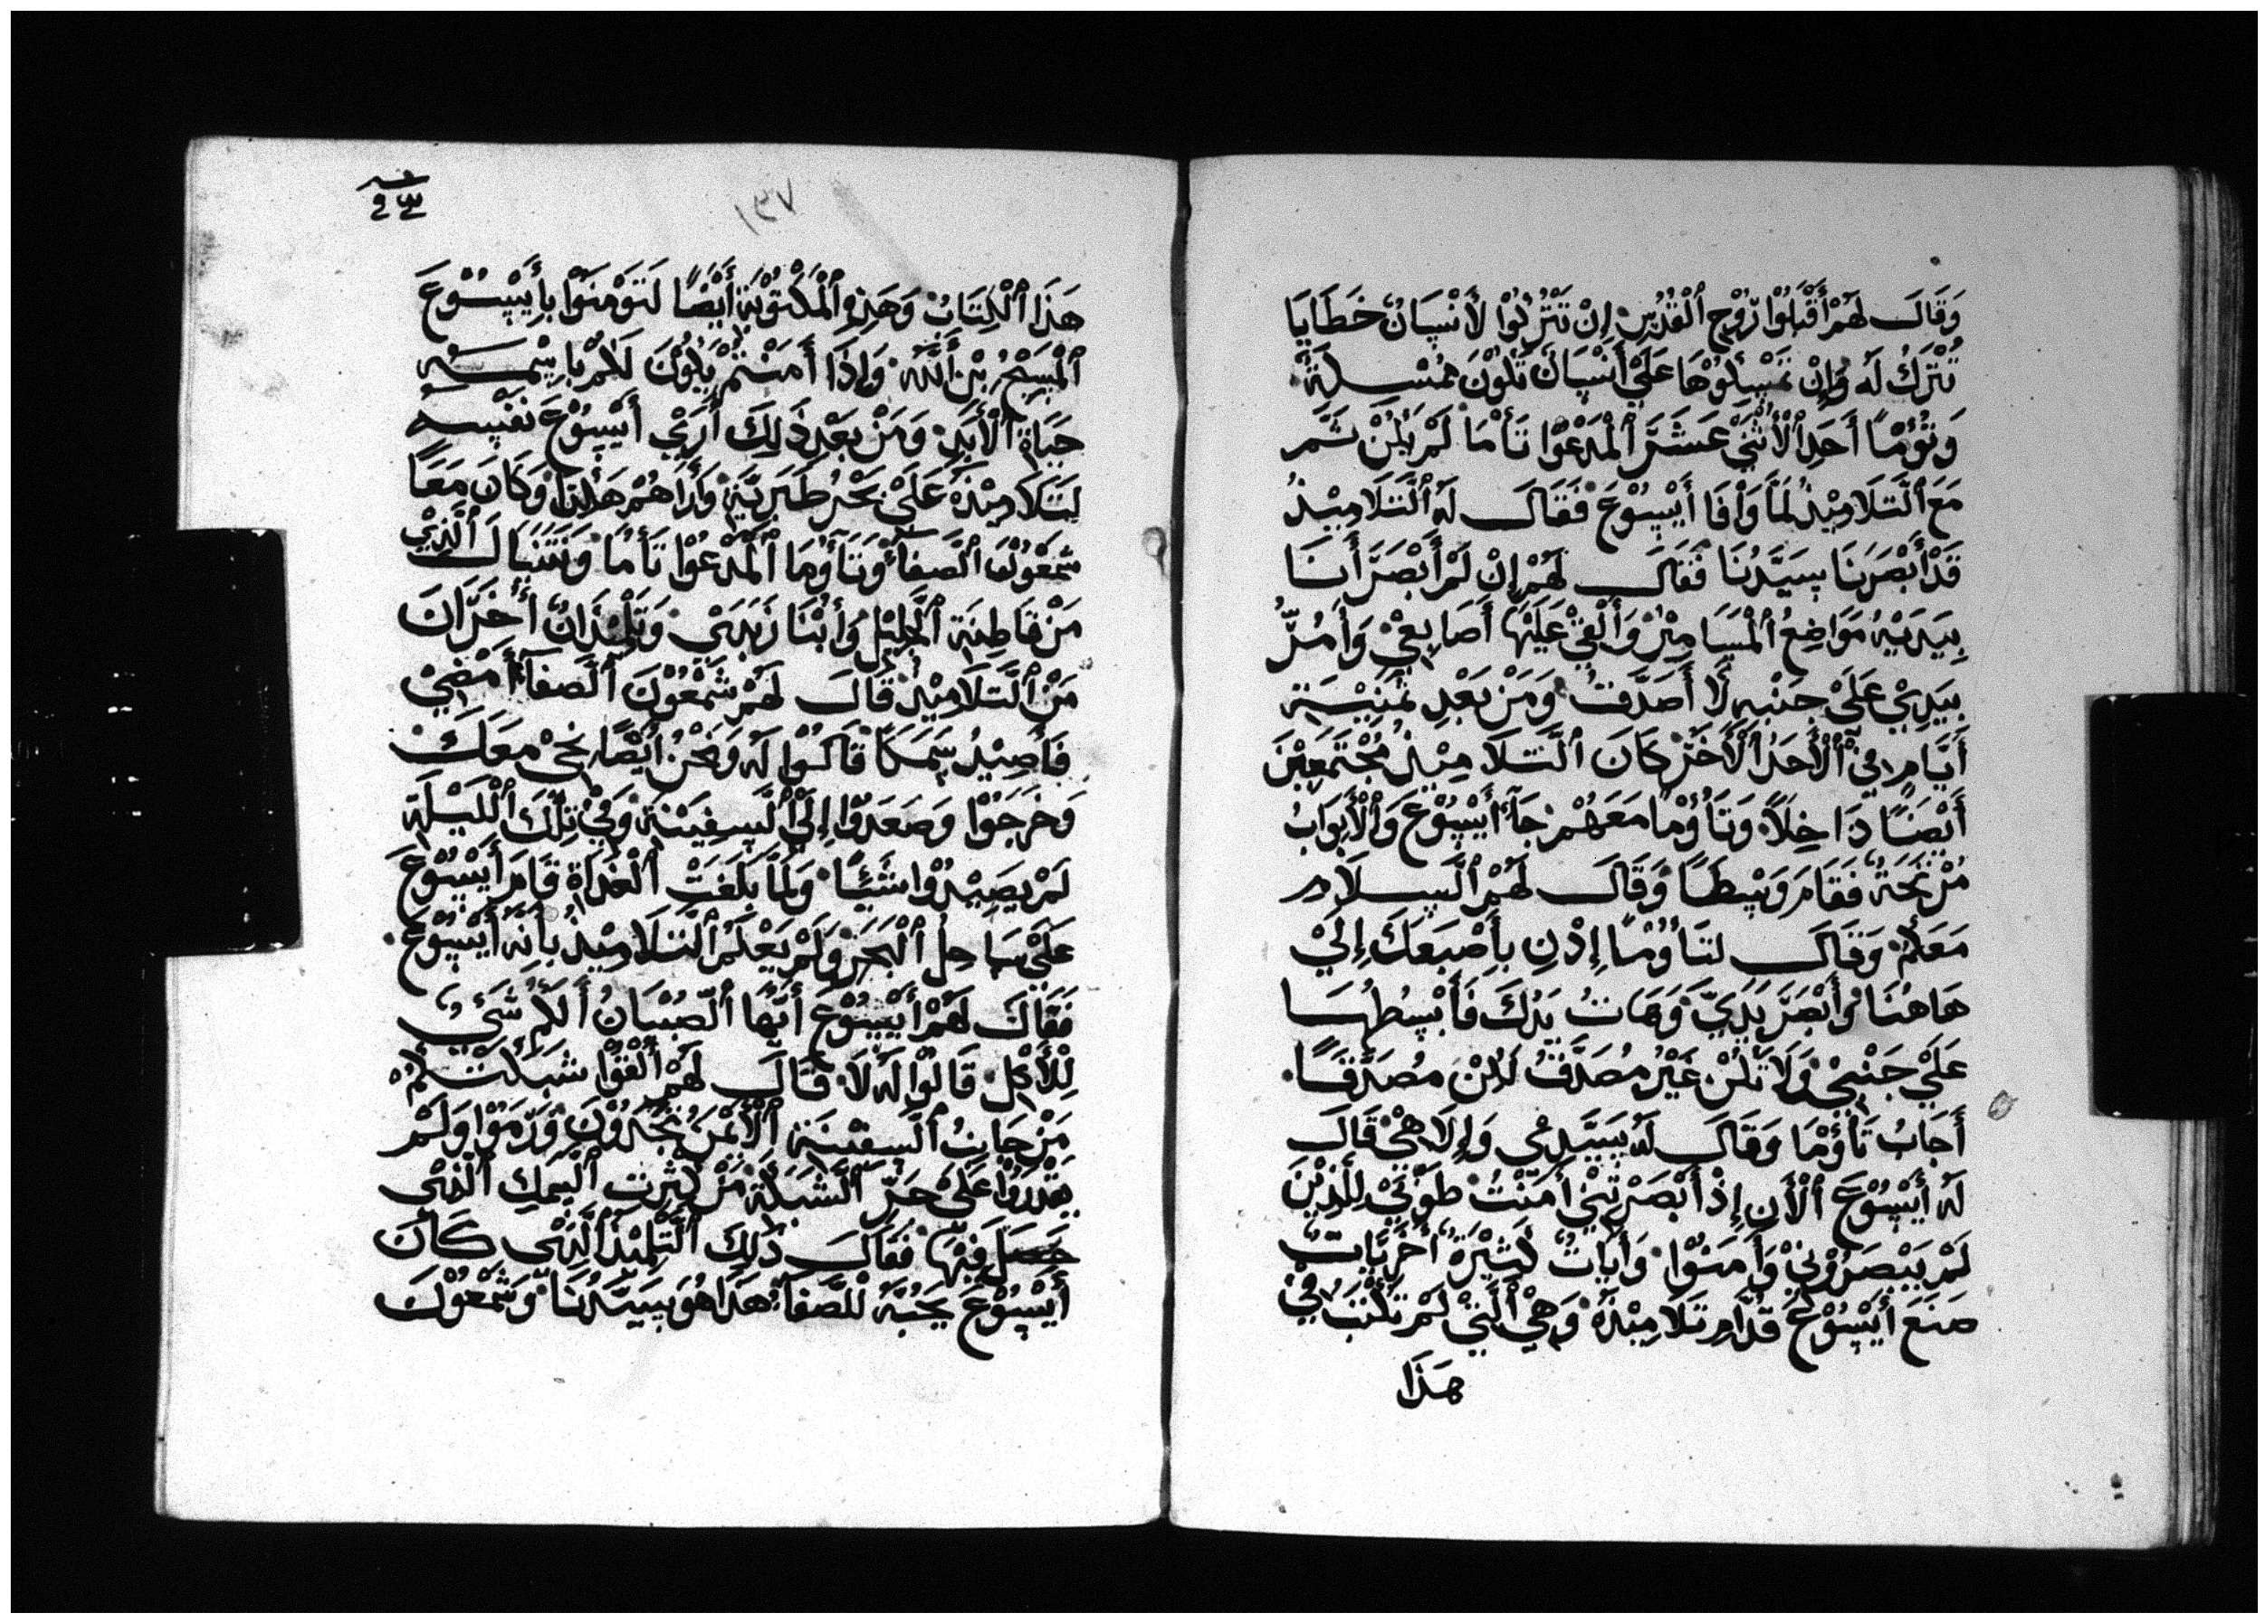 وَقَالَ لَهُمْ أَقْبَلُوْا رُوْح ٱلْقُدُسِ إِنْ تَتْرُكُوْا لأَنْسَانٌ خَطَايَا
تُتْرَكُ لَه وَإِنْ تَمْسِكُوْهَا عَلَيْ أَنْسَانٌ تَكُوْنَ مُمْسَكَةً
وَتَؤُمْاً أَحَدِ ٱلْأَثْنَيْ عَشَرَ ٱلْمَدْعُوْا تَأْمَا لَمْ يَكُنْ ثَمَّر
مَعَ ٱلْتَّلَامِيْذِ لَمَّا وَاْفَا أَيْسُوْعَ فَقَالَ لَه ٱلْتَّلَامِيْذُ
قَدْ أَبْصَرَنَا سِيَّدُنَا فَقَالَ لَهُمْ إِنْ لَمْ أَبْصَرَ أَنَا
بِيَدَيْهِ مَوَاضِعُ ٱلْمَسَامِيْرْ وَأَلْقِيْ عَلَيْهَا أَصَابِعِيْ وَأَمُرُّ
بِيَدِيْ عَلَيْ جَنْبِه لَا أَصَدَّقُ وَمَنْ بَعْدِ ثَمَنِيْيَة
أَيَّامٍ فِيْ ٱلْأَحَدُ ٱلْأَخَرْ كَانَ ٱلْتَّلَامِيْذُ مُجْتَمَعِيْنَ
أَيْضَاً دَاخِلَاً وَتَأُوْمَا مَعَهُمْ جَآءَ أَيْسُوْعَ وَٱلْأَبْوَابُ
مُرْتَجَةٌ فَقَامَ وَسْطَاً وَقَالَ لَهُمْ ٱلْسَّلَامُ
مَعَكُمْ وَقَالَ لتَأُوْمَاً إِدْنِ بِأَصْبَعَكَ إِلَيْ
هَاهُنَا وَأَبْصَرَ يَدَيَّ وَهَاتُ يَدُكَ فَأَبْسُطُهَا
عَلَيْ جَنْبِيْ وَلَا تَكُنْ غَيْرُ مُصَدَّقُ لَكِنْ مُصَدَّقَاً.
أَجَابَ تَأُوْمَا وَقَالَ لَه يَسَيَّدِيْ وَإِلَاهِيْ قَالَ
لَه أَيْسُوْعَ ٱلْأَنِ إِذْ أَبْصَرْتَنِيْ أَمَنْتُ طَوْبَيْ لِلَّذِيْنَ
لَمْ يَبْصَرُوْنِيْ وَأَمَنُوْا وَأَيَاتٌ كَثِيْرَةٌ أُخْرَيَّاتٌ
صَنَعَ أَيْسُوْعَ قُدَّامِ تَلَامِيْذَهُ وَهِيْ ٱلَّتِيْ لَمْ تُكْتَبْ فِيْ
هَذَا
١٣٧
هَذَا ٱلْكِتَابُ وَهَذِهِ ٱلْمَكْتُوْبَةِ أَيْضَاً لَتَوْمَنُوْا بِأَيْسُوْعَ
ٱلْمَسِيْحُ بْنِ أَللَّه وَإِذَا أَمَنْتُمْ يَكُوْنَ لَكُمْ بِاِسْمِه
حَيَاةِ ٱلْأَبَدِ وَمَنْ بَعْدِ ذَلِكَ أَرَيْ أَيْسُوْعَ نَفْسِهُ
لِتَلَامِيْذَهُ عَلَيْ بَحْرُ طَبَرِيَّةِ وَأَرَاهُمْ هَكَذَا وَكَانَ مَعَاً
شَمْعُوْنَ ٱلْصَّفَآءُ وَتَآوُمَا ٱلْمَدْعُوْا تَأْمَا وَنَتَنْيَالَ ٱلَّذِيْ
مَنْ قَاطِنَة ٱلْجَلِيْلِ وَأَبْنَا زَبَدَيْ وَتَلْمِيْذَانٌ أُخَرَّانَ
مَنْ ٱلْتَّلَامِيْذُ قَالَ لَهُمْ شَمْعُوْنَ ٱلْصَّفَآءَ أَمْضِيْ
فَأَصِيْدُ سَمَكَاً قَالُوْا لَه وَنَحْنُ أَيْضَاً نَجِيْ مَعَكَ
وَخَرَجُوْا وَصَعَدُوْا إِلَيْ ٱلْسَّفِيْنَةِ وَفِيْ تِلْكَ ٱلْلَيْلَة
لَمْ يَصِيْدُوْا شَيْئَاً وَلَمَّا بَلَغَتْ ٱلْغَدَاةِ قَامَ أَيْسُوْعَ
عَلَيْ سَاحِلُ ٱلْبَحَرْ وَلَمْ يَعْلَمُ ٱلْتَّلَامِيْذُ بِأَنَّه أَيْسُوْعَ.
فَقَالَ لَهُمْ أَيْسُوْعَ أَيُّهَا ٱلْصِّبْيَانُ أَلَكُمْ شَيْءٌ
لِلْأَكِلِ قَالُوْا لَه لَا فَقَالَ لَهُمْ أَلْقُوْا شَبَكَتَكُمْ
مَنْ جَانِبُ ٱلْسَّفِيْنَةِ ٱلْأَيْمَنَ تَجَدُوْنَ وَرَمَوْا وَلَمْ
يَقْدَرُوْا عَلَيْ جَرِّ ٱلْشَّبَكَةِ مَنْ كِثْرِتِ ٱلْسَمَكِ ٱلَّذِيْ
حَصَلَ فِيْهَا فَقَالَ ذَلِكَ ٱلْتِّلْمِيْذُ ٱلَّذِيْ كَانَ
أَيْسُوْعَ يَحُبَّهُ لْلصَّفَآءُ هَذَا هُوَ سَيَّدُنَا وَشَمْعُوْنَ